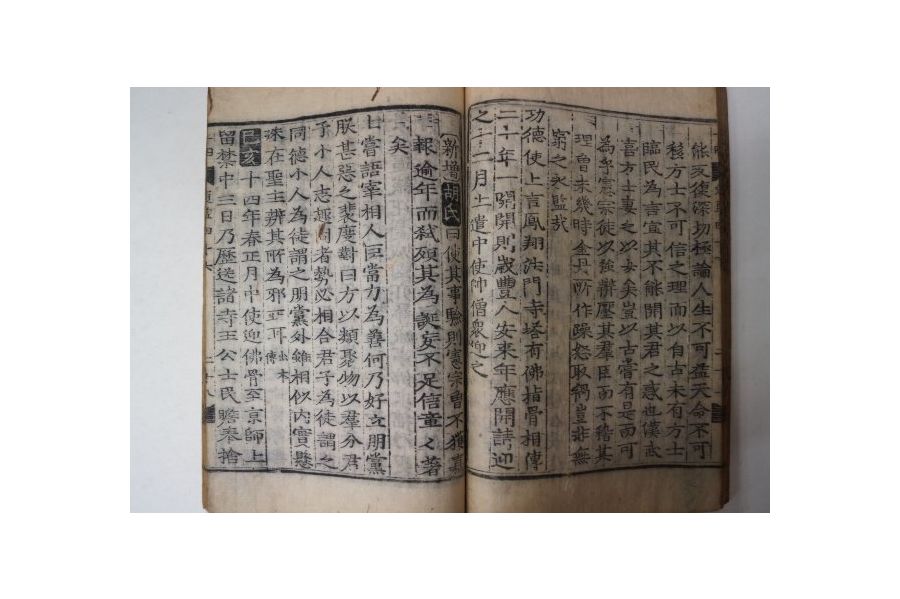 能反復深切極論人生不可益天命不可
移方士不可信之理而以自古未有方士
臨民為言宜其不能開其君之惑也漢武
喜方士妻之以女矣豈以古嘗有是而可
為乎憲宗徒以強辯壓其羣臣而不稽其
理曾未幾時金丹所作躁怒取禍豈非無
窮之永監哉
功德使上言鳳翔法門寺塔有佛指骨相傳
三十年一開開則歲豐人安來年應開請迎
之十二月上遣中使帥僧衆迎之
新增胡氏曰使其事驗則憲宗曾不獲
報逾年而弑殞其為誕妄不足信章章著
矣
上嘗語宰相人臣當力為善何乃好立朋黨
朕甚惡之裴度對曰方以類聚物以羣分君
子小人志趣同者勢必相合君子為徒謂之
同德小人為徒謂之朋黨外雖相似內實懸
殊在聖主辨其所為邪正耳
己亥十四年春正月中使迎佛骨至京師上
留禁中三日乃歷送諸寺王公士民瞻奉捨